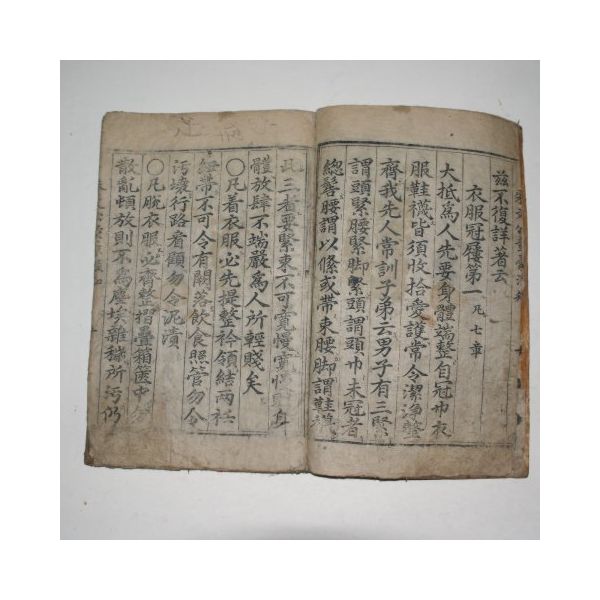 玆不復詳著云
衣服冠屨第一 凡七章
大抵爲人先要身體端整自冠巾衣
服鞋襪皆須收拾愛護常令潔淨整
齊我先人常訓子弟云男子有三緊
謂頭緊腰緊脚緊頭謂頭巾未冠者
總髻腰謂以絛或帶束腰脚謂鞋襪
此三者要緊束不可寬慢寬慢則身
體放肆不端嚴爲人所輕賤矣
○凡着衣服必先提整衿領結兩衽
紐帶不可令有闕落飲食照管勿令
汚壞行路看顧勿令泥漬
○凡脫衣服必齊整摺疊箱篋中勿
散亂頓放則不爲塵埃雜穢所汚仍